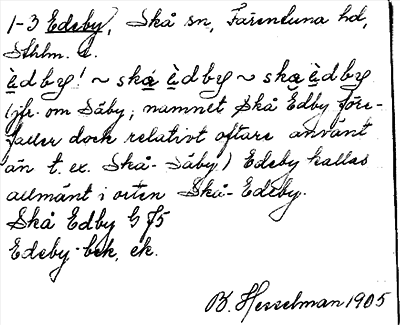 1-3 Edeby, Skå sn, Färentuna hd,
Sthlm. l.
èdby! ~ skạ èdby ~ skạ èdby
(jfr. om Säby; namnet Skå Edby före-
faller dock relativt oftare använt
än t. ex. Skå-Säby.) Edeby kallas
allmänt i orten Skå-Edeby.
Skå Edby G 75
Edeby-bek, ek.
B. Hesselman 1905